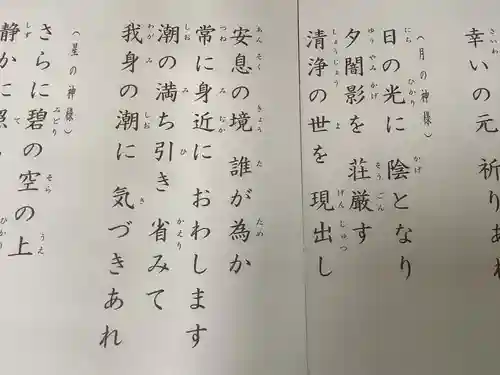 幸いの元 祈りあれ
（月の神様）
日の光に 陰となり
夕闇影を 荘厳す
清浄の世を 現出し
安息の境 誰が為か
常に身近に おわします
潮の満ち引き 省みて
我身の潮に 気づきあれ
（星の神様）
さらに碧の空の上
静かに照